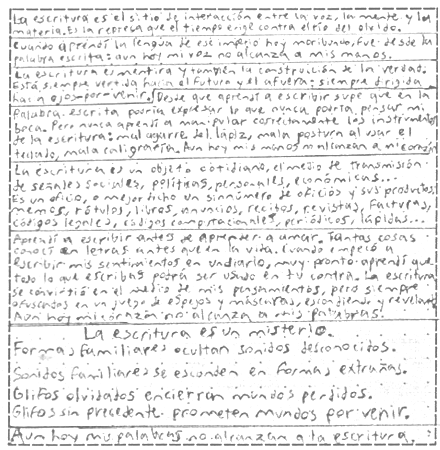 La escritura es el sitio de interacción entre la voz, la mente y la
materia. Es la represa que el tiempo erige contra el río del olvido.
Cuando aprendí la lengua de ese imperio hoy moribundo, fue desde la
palabra escrita: aun hoy mi voz no alcanza a mis manos.
La escritura es mentira y también la construcción de la verdad.
Está siempre vertida hacia el futuro y el afuera: siempre dirigida
hacia ojos-por-venir. Desde que aprendí a escribir supe que en la
palabra escrita podría expresar lo que nunca podría pensar mi
boca. Pero nunca aprendí a manipular correctamente los instrumentos
de la escritura: mal agarre del lápiz, mala postura al usar el
teclado, mala caligrafía. Aun hoy mis manos no alcanzan a mi corazón.
La escritura es un objeto cotidiano, el medio de transmisión
de señales sociales, políticas, personales, económicas...
Es un oficio, o mejor dicho un sinnúmero de oficios y sus productos:
memos, rótulos, libros, anuncios, recibos, revistas, facturas,
códigos legales, códigos computacionales, periódicos, lápidas...
Aprendí a escribir antes de aprender a amar. Tantas cosas
conocí en letras antes que en la vida. Cuando empecé a
escribir mis sentimientos en un diario, muy pronto aprendí que
todo lo que escribas podrá ser usado en tu contra. La escritura
se convirtió en el medio de mis pensamientos, pero siempre
ofuscados en un juego de espejos y máscaras, escondiendo y revelando.
Aun hoy mi corazón no alcanza a mis palabras.
La escritura es un misterio.
Formas familiares ocultan sonidos desconocidos.
Sonidos familiares se esconden en formas extrañas.
Glifos olvidados encierran mundos perdidos.
Glifos sin precedente prometen mundos por venir.
Aun hoy mis palabras no alcanzan a la escritura.